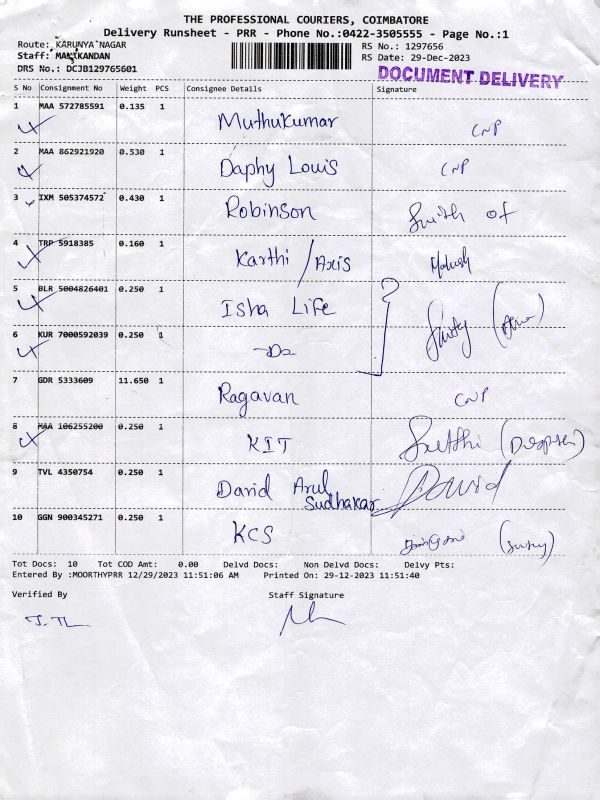 THE PROFESSIONAL COURIERS, COIMBATORE
Delivery Runsheet - PRR - Phone No.:0422-3505555 - Page No.:1
Route: KARUNYA NAGAR RS No.: 1297656
Staff: MANIKANDAN RS Date: 29-Dec-2023
DRS No.: DCJB129765601
DOCUMENT DELIVERY
S No Consignment No Weight PCS Consignee Details Signature
1 MAA 572785591 0.135 1 Muthukumar CNP
2 MAA 862921920 0.530 1 Daphy Louis CNP
3 IXM 505374572 0.430 1 Robinson
4 TRP 5918385 0.160 1 Karthi / Axis
5 BLR 5004826401 0.250 1 Isha Life
6 KUR 7000592039 0.250 1 -Do
7 GDR 5333609 11.650 1 Ragavan CNP
8 MAA 106255200 0.250 1 KIT
9 TVL 4350754 0.250 1 David Arul Sudhakar David
10 GGN 900345271 0.250 1 KCS
Tot Docs: 10 Tot COD Amt: 0.00 Delvd Docs: Non Delvd Docs: Delvy Pts:
Entered By :MOORTHYPRR 12/29/2023 11:51:06 AM Printed On: 29-12-2023 11:51:40
Verified By Staff Signature